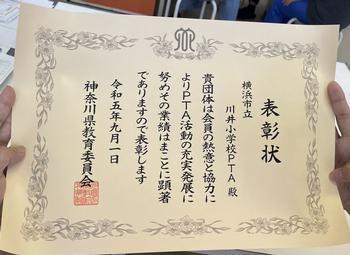 表彰状
横浜市立
川井小学校PTA 殿
貴団体は会員の熱意と協力に
よりPTA活動の充実発展に
努めその業績はまことに顕著
でありますので表彰します
令和五年九月一日
神奈川県教育委員会